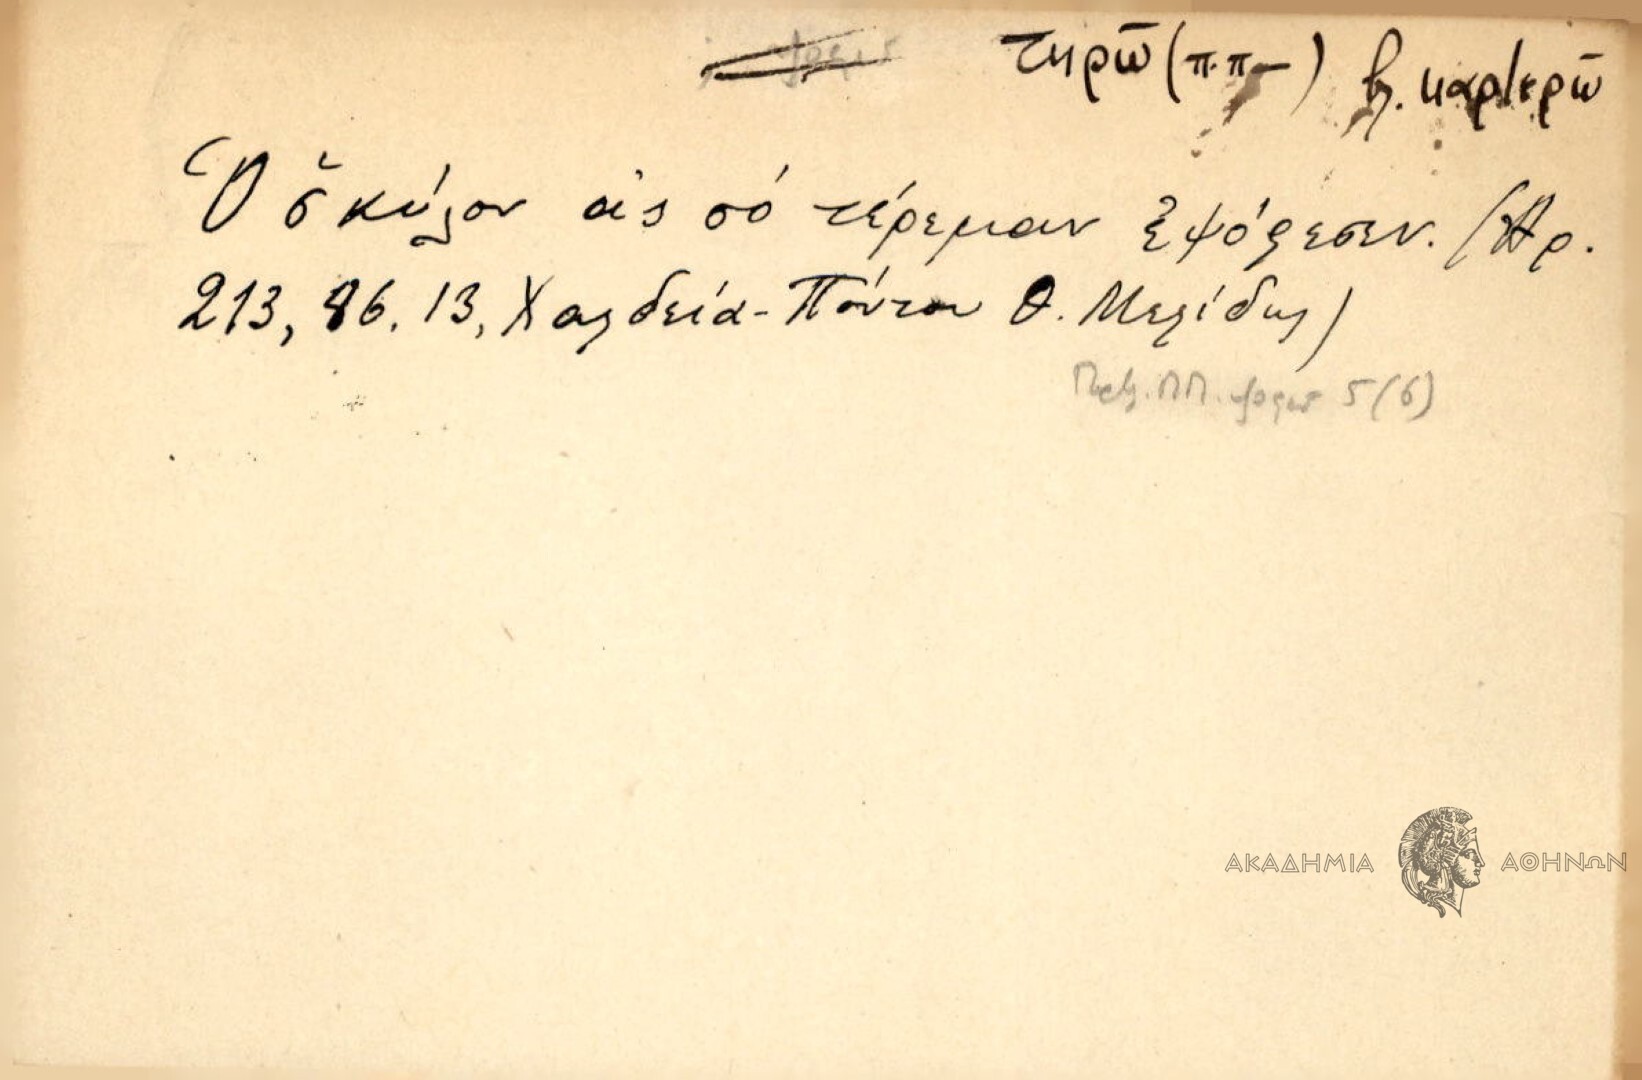 τηρῶ (π.π–) βλ. καρτερῶ
Ὁ σ̌κύλον ἀς σό τέρεμαν ἐψόφεσεν. (Ἀρ.
213, 86. 13, Χαλδεία - Πόντου Θ. Μελίδης)
5 (6)
ΑΚΑΔΗΜΙΑ ΑΘΗΝΩΝ